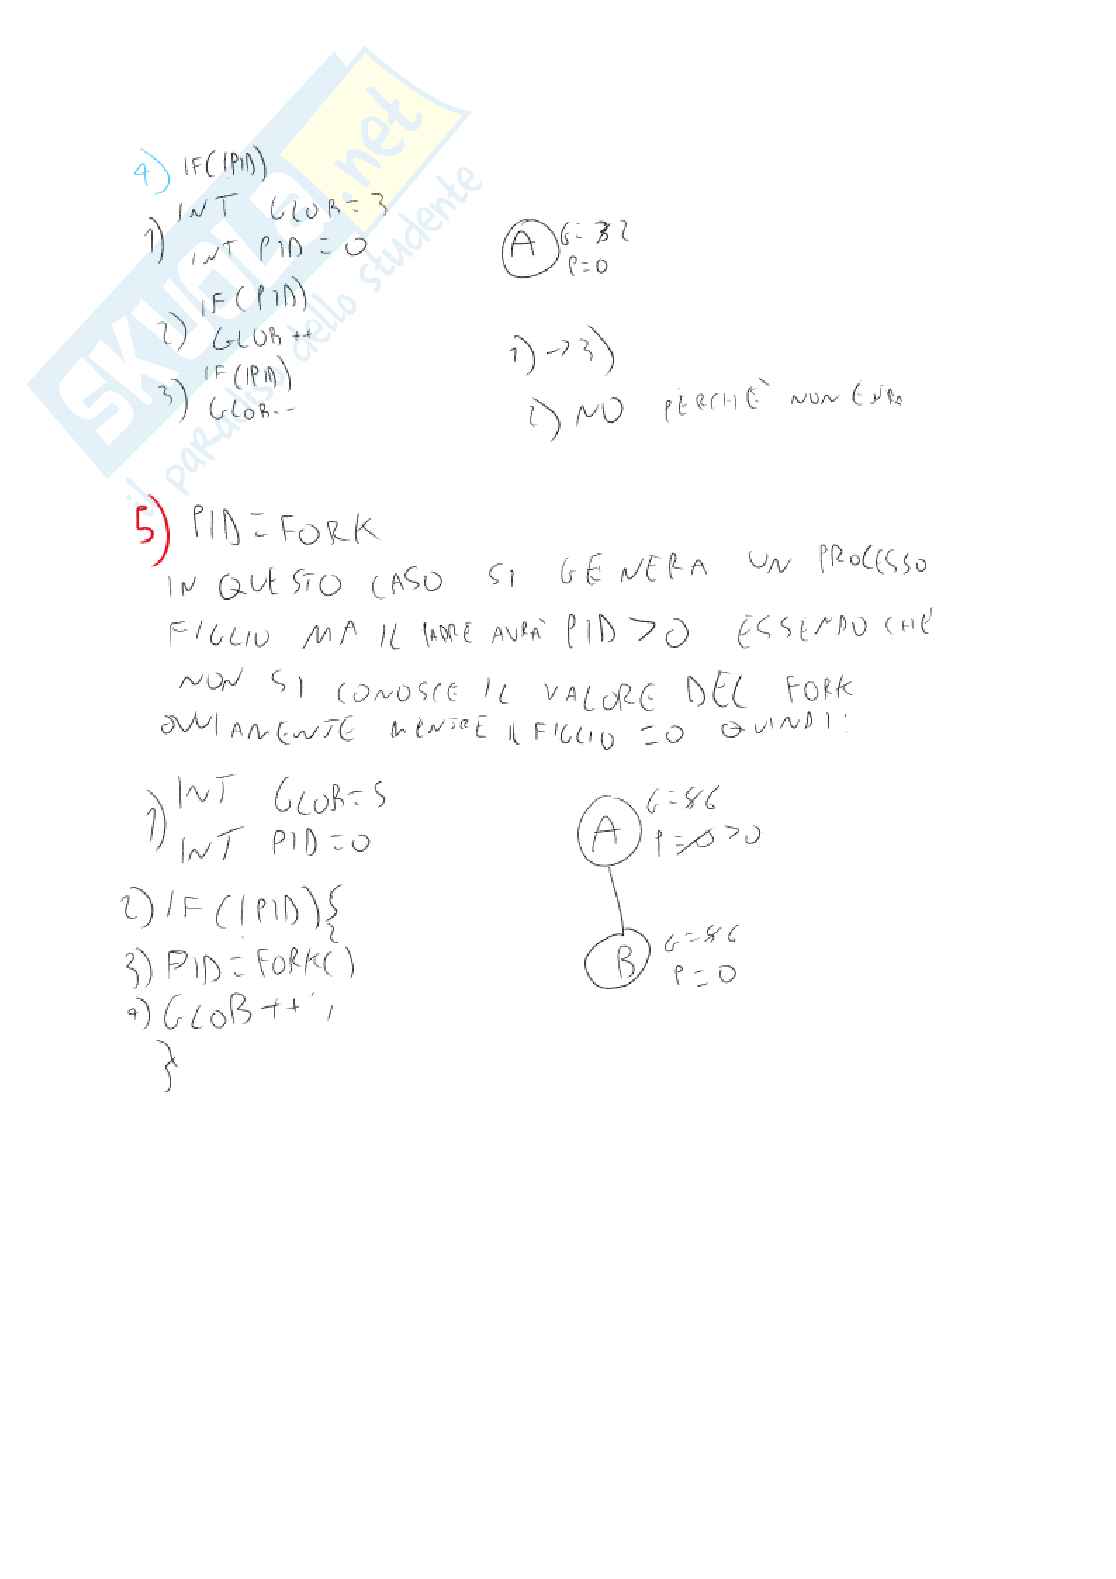 SKUOLA.net
il paradiso dello studente
4) IF(!PID)
1) INT GLOB=3
INT PID=0
2) IF(PID)
GLOB++
3) IF(!PID)
GLOB--
A G=3 2
P=0
1)->3)
2) NO PERCHÈ NON ENTRO
5) PID=FORK
IN QUESTO CASO SI GENERA UN PROCESSO
FIGLIO MA IL PADRE AVRÀ PID>0 ESSENDO CHE
NON SI CONOSCE IL VALORE DEL FORK
OVVIAMENTE MENTRE IL FIGLIO =0 QUINDI:
1) INT GLOB=5
INT PID=0
2) IF(!PID){
3) PID=FORK()
4) GLOB++;
}
A G=5 6
P=0 >0
B G=5 6
P=0